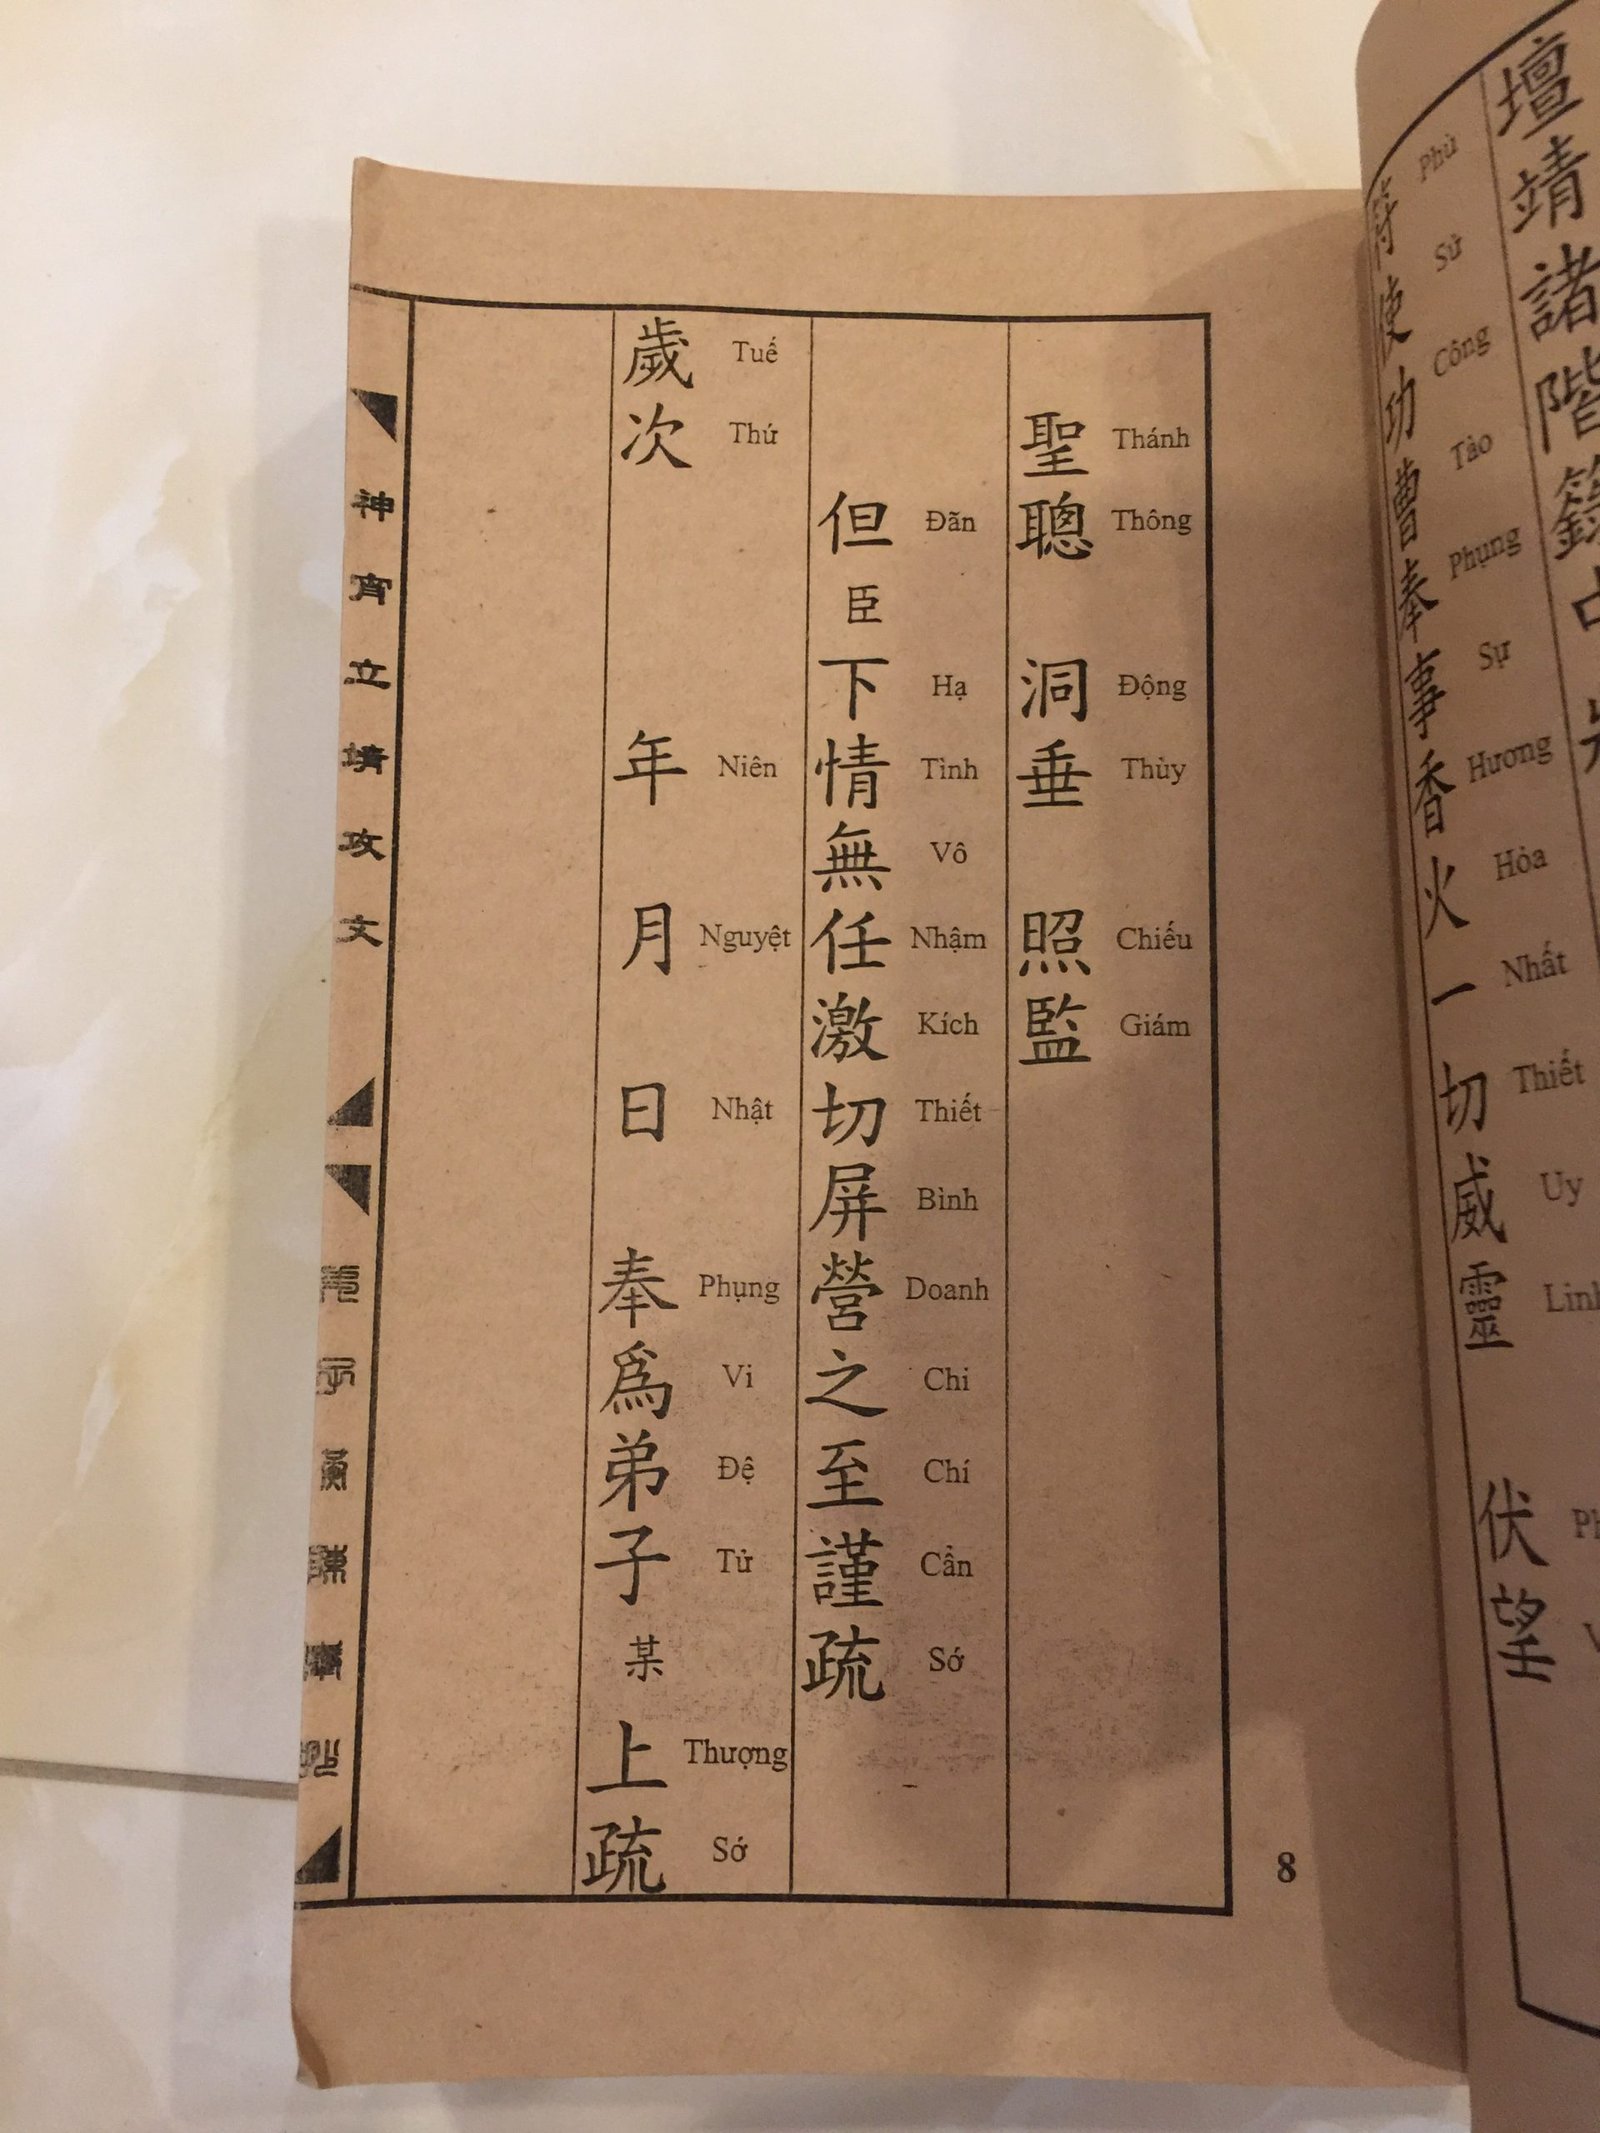 壇靖諸階
符使功曹奉事香火一切威靈
Phù Sứ Công Tào Phụng Sự Hương Hỏa Nhất Thiết Uy
伏望
聖聰 洞垂 照監
Thánh Thông Động Thùy Chiếu Giám
但臣下情無任激切屏營之至謹疏
Đãn Hạ Tình Vô Nhậm Kích Thiết Bình Doanh Chi Chí Cẩn Sớ
歲次 年 月 日 奉爲弟子某上疏
Tuế Thứ Niên Nguyệt Nhật Phụng Vi Đệ Tử Thượng Sớ
神宵立靖攻文
8